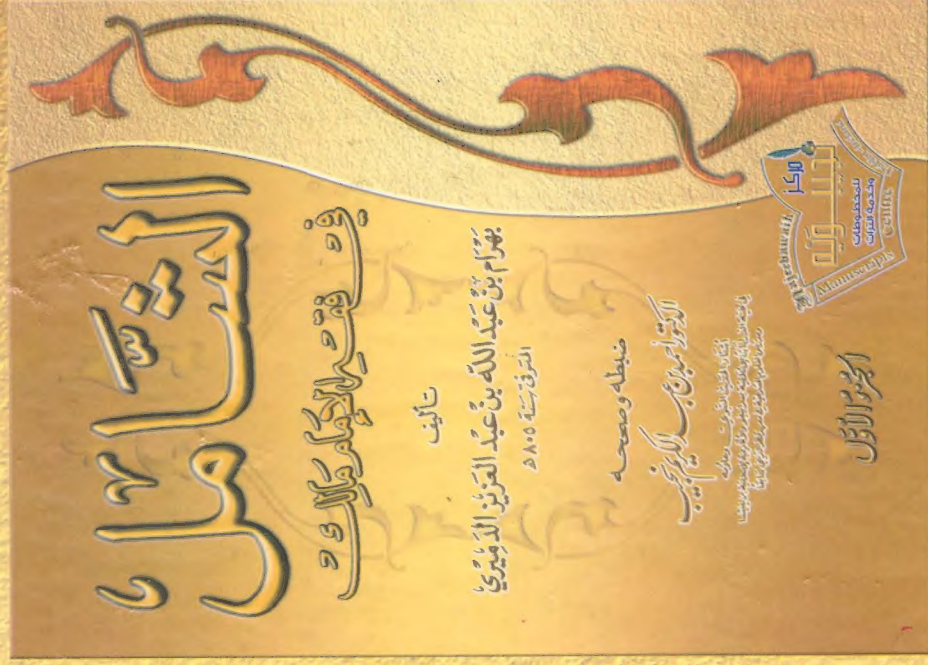 الشَّامِلُ
فِي فِقْهِ الإِمَامِ مَالِكٍ
تأليف
بَهْرَام بْن عَبْد اللَّه بْن عَبْد العَزِيز الدَّمِيْرِيّ
المتوفى سنة ٨٠٥ هـ
ضبطه وصححه
الدكتور أحمد بن عبد الكريم نجيب
الجزء الأول
مركز
نجيبويه
للمخطوطات
وخدمة التراث
Najeebawaih
Manuscripts
Centre